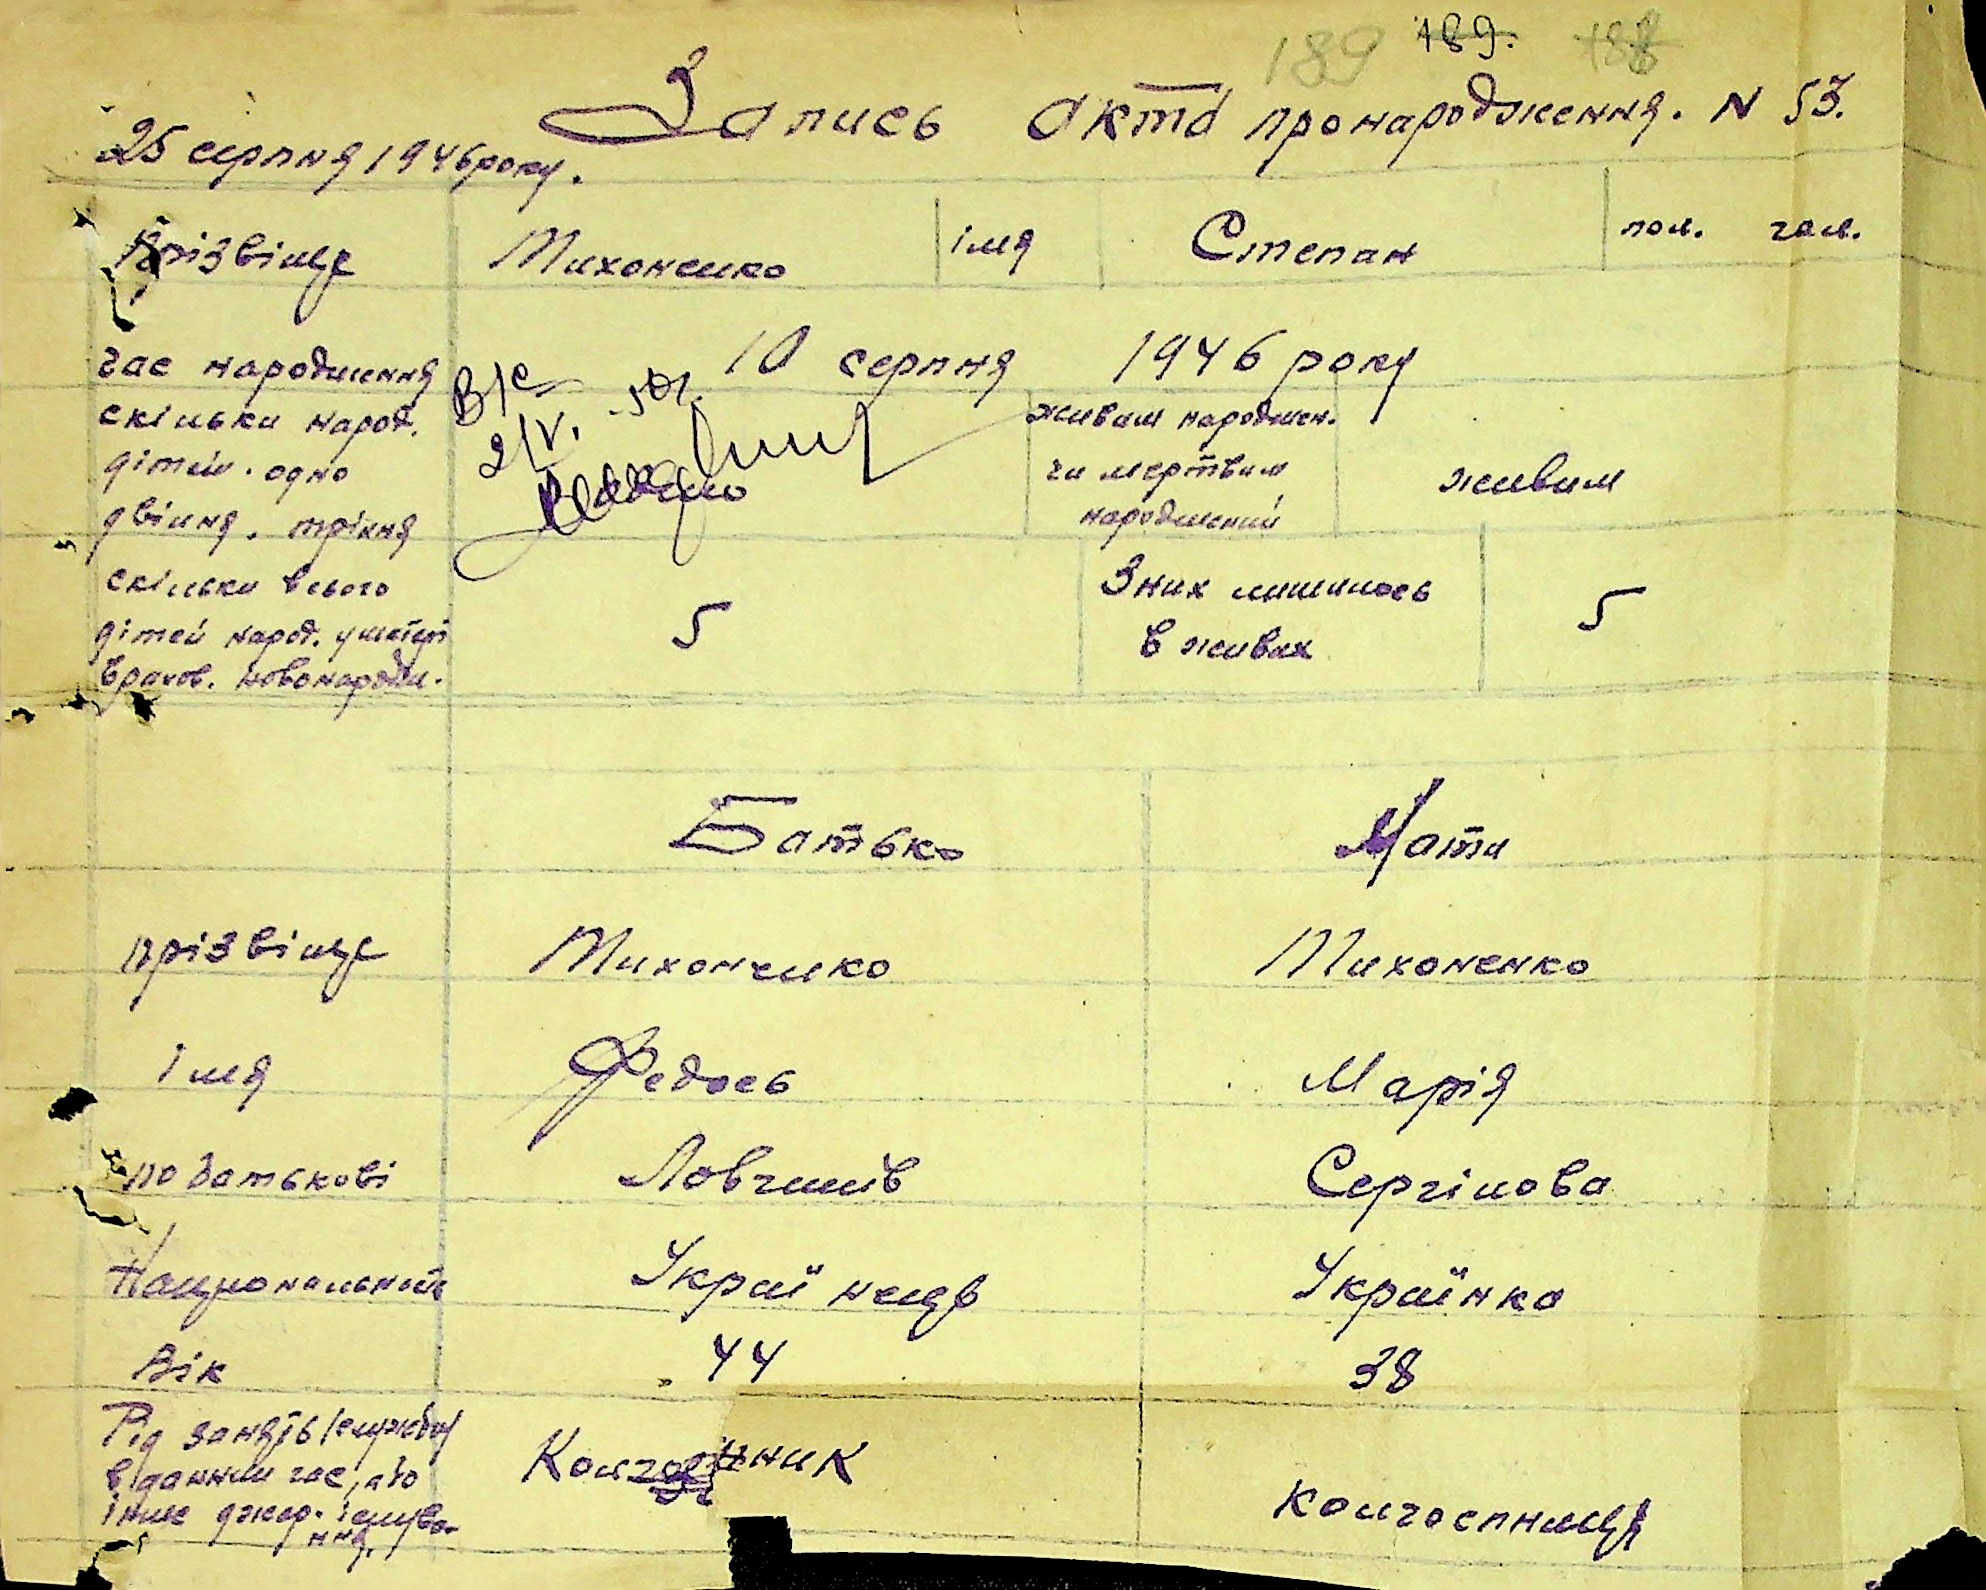 189 189. 188
Запись акта про народження. N 53.
25 серпня 1946 року.
Прізвіще Михоненко імя Степан пол. чол.
Час народження 10 серпня 1946 року
скільки народ. В/с 2/V. 50г. живим народжен.
дітей. одно чи мертвим живим
двійня. трійня народжений
скільки всього З них лишилось
дітей народ. у матері 5 в живих 5
врахов. новонародж.
Батько Мати
прізвіще Михоненко Михоненко
імя Федось Марія
по батькові Сергійова
Національність Українець Українка
Вік 44 38
Рід занять (служби)
в данний час, або Колгоспник колгоспниця
інше джер. існува-
ння.